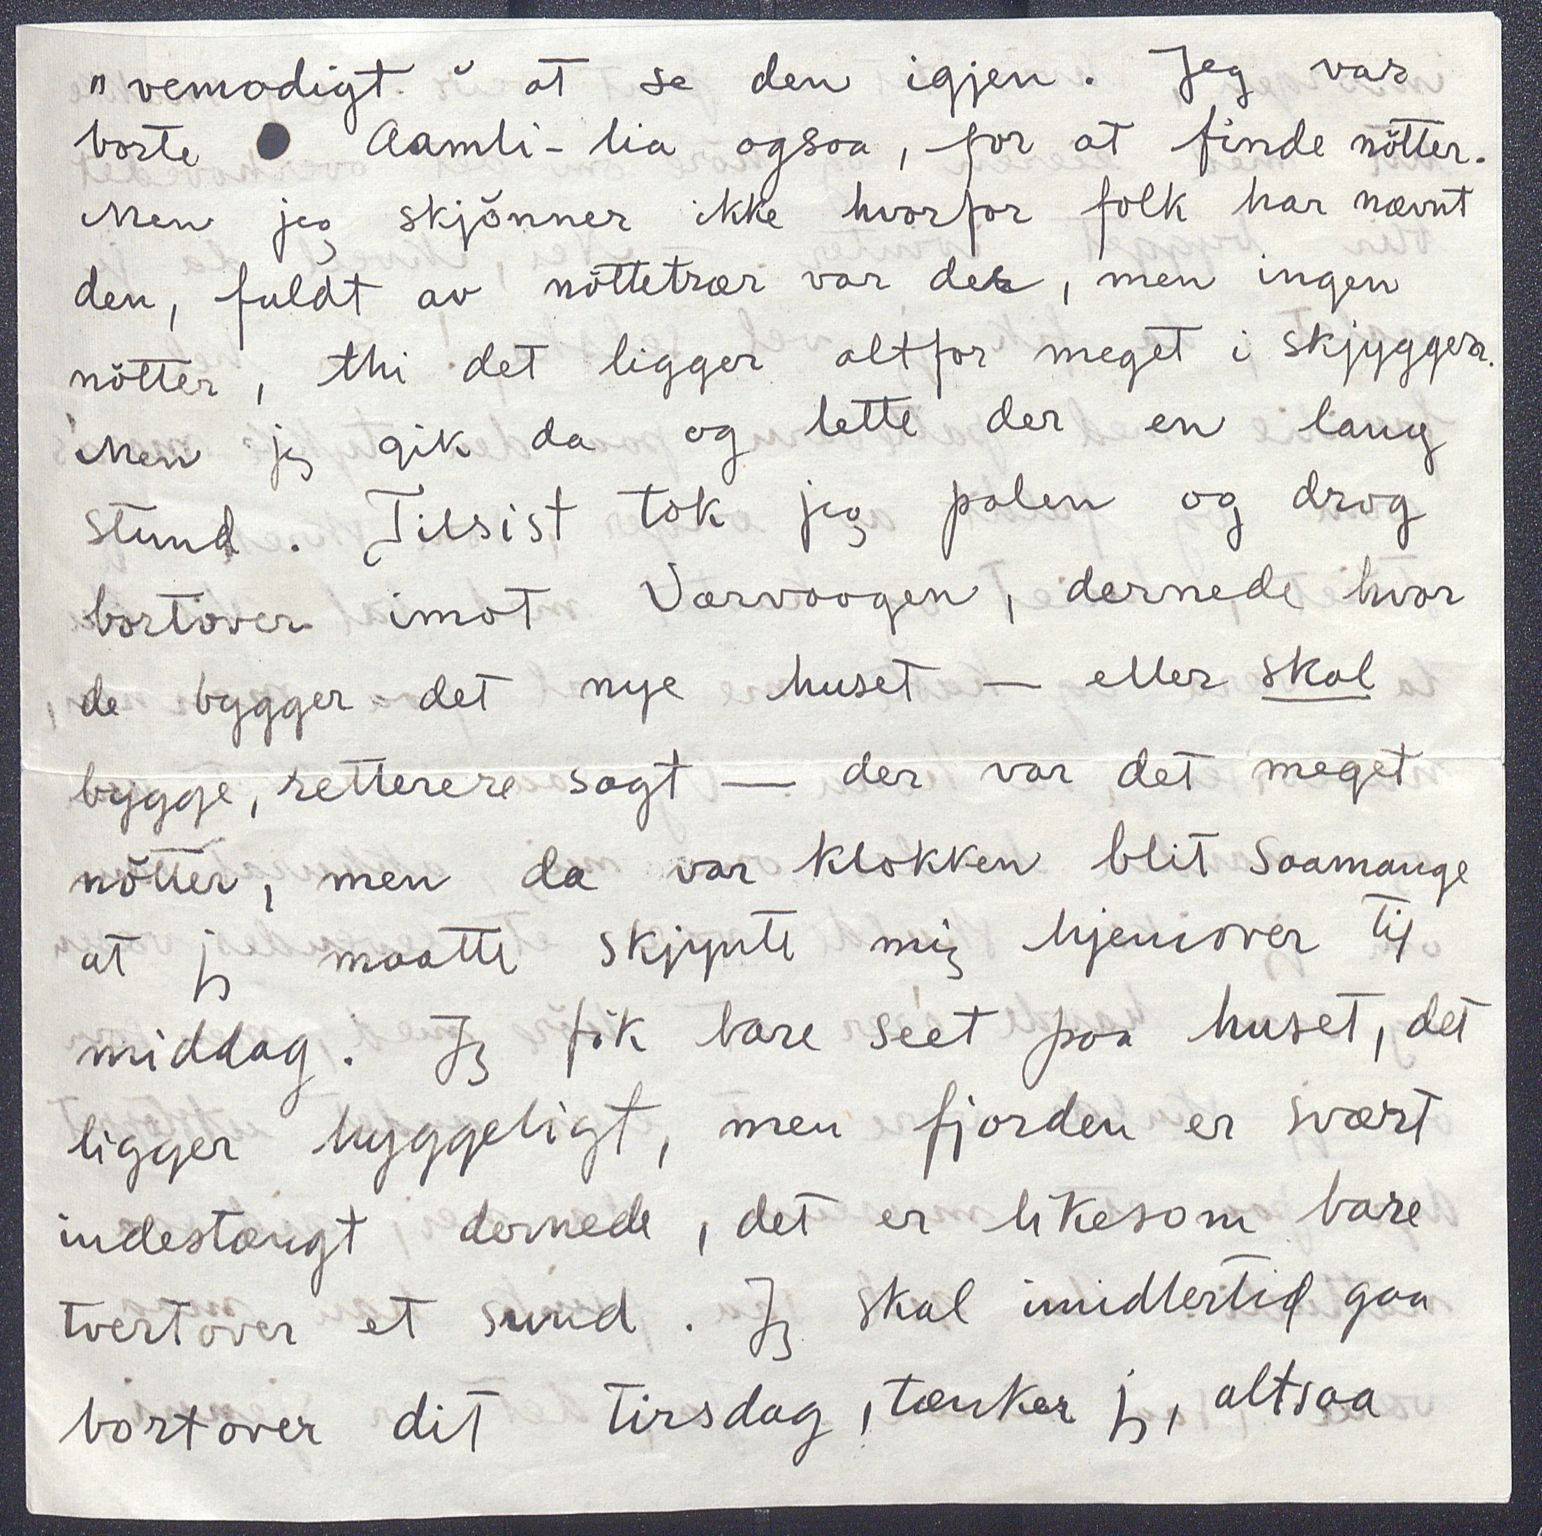 "vemodigt" at se den igjen. Jeg var
borte Aamli-lia ogsaa, for at finde nötter.
Men jeg skjönner ikke hvorfor folk har nævnt
den, fuldt av nöttetrær var der, men ingen
nötter, thi det ligger altfor meget i skjyggen.
Men jeg gik da og lette der en lang
stund. Tilsist tok jeg palen og drog
bortover imot Værvaagen, dernede hvor
de bygger det nye huset — eller skal
bygge, retterere sagt — der var det meget
nötter, men da var klokken blit saamange
at jeg maatte skjynte mig hjemover til
middag. Jeg fik bare seet paa huset, det
ligger hyggeligt, men fjorden er svært
indestængt dernede, det er likesom bare
tvertover et sund. Jeg skal imidlertid gaa
bortover dit tirsdag, tænker jeg, altsaa